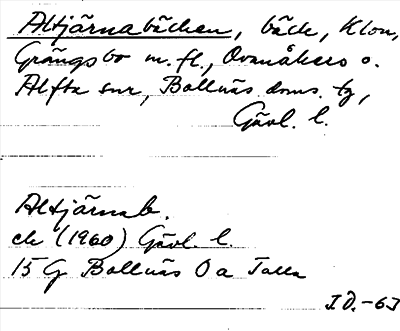 Altjärnabäcken, bäck, Klon,
Grängsbo m.fl., Ovanåkers o.
Alfta snr, Bollnäs doms. tg,
Gävl. l.
Altjärnab.
ek (1960) Gävl. l.
15 G Bollnäs 0 a Talla
I.D.-63